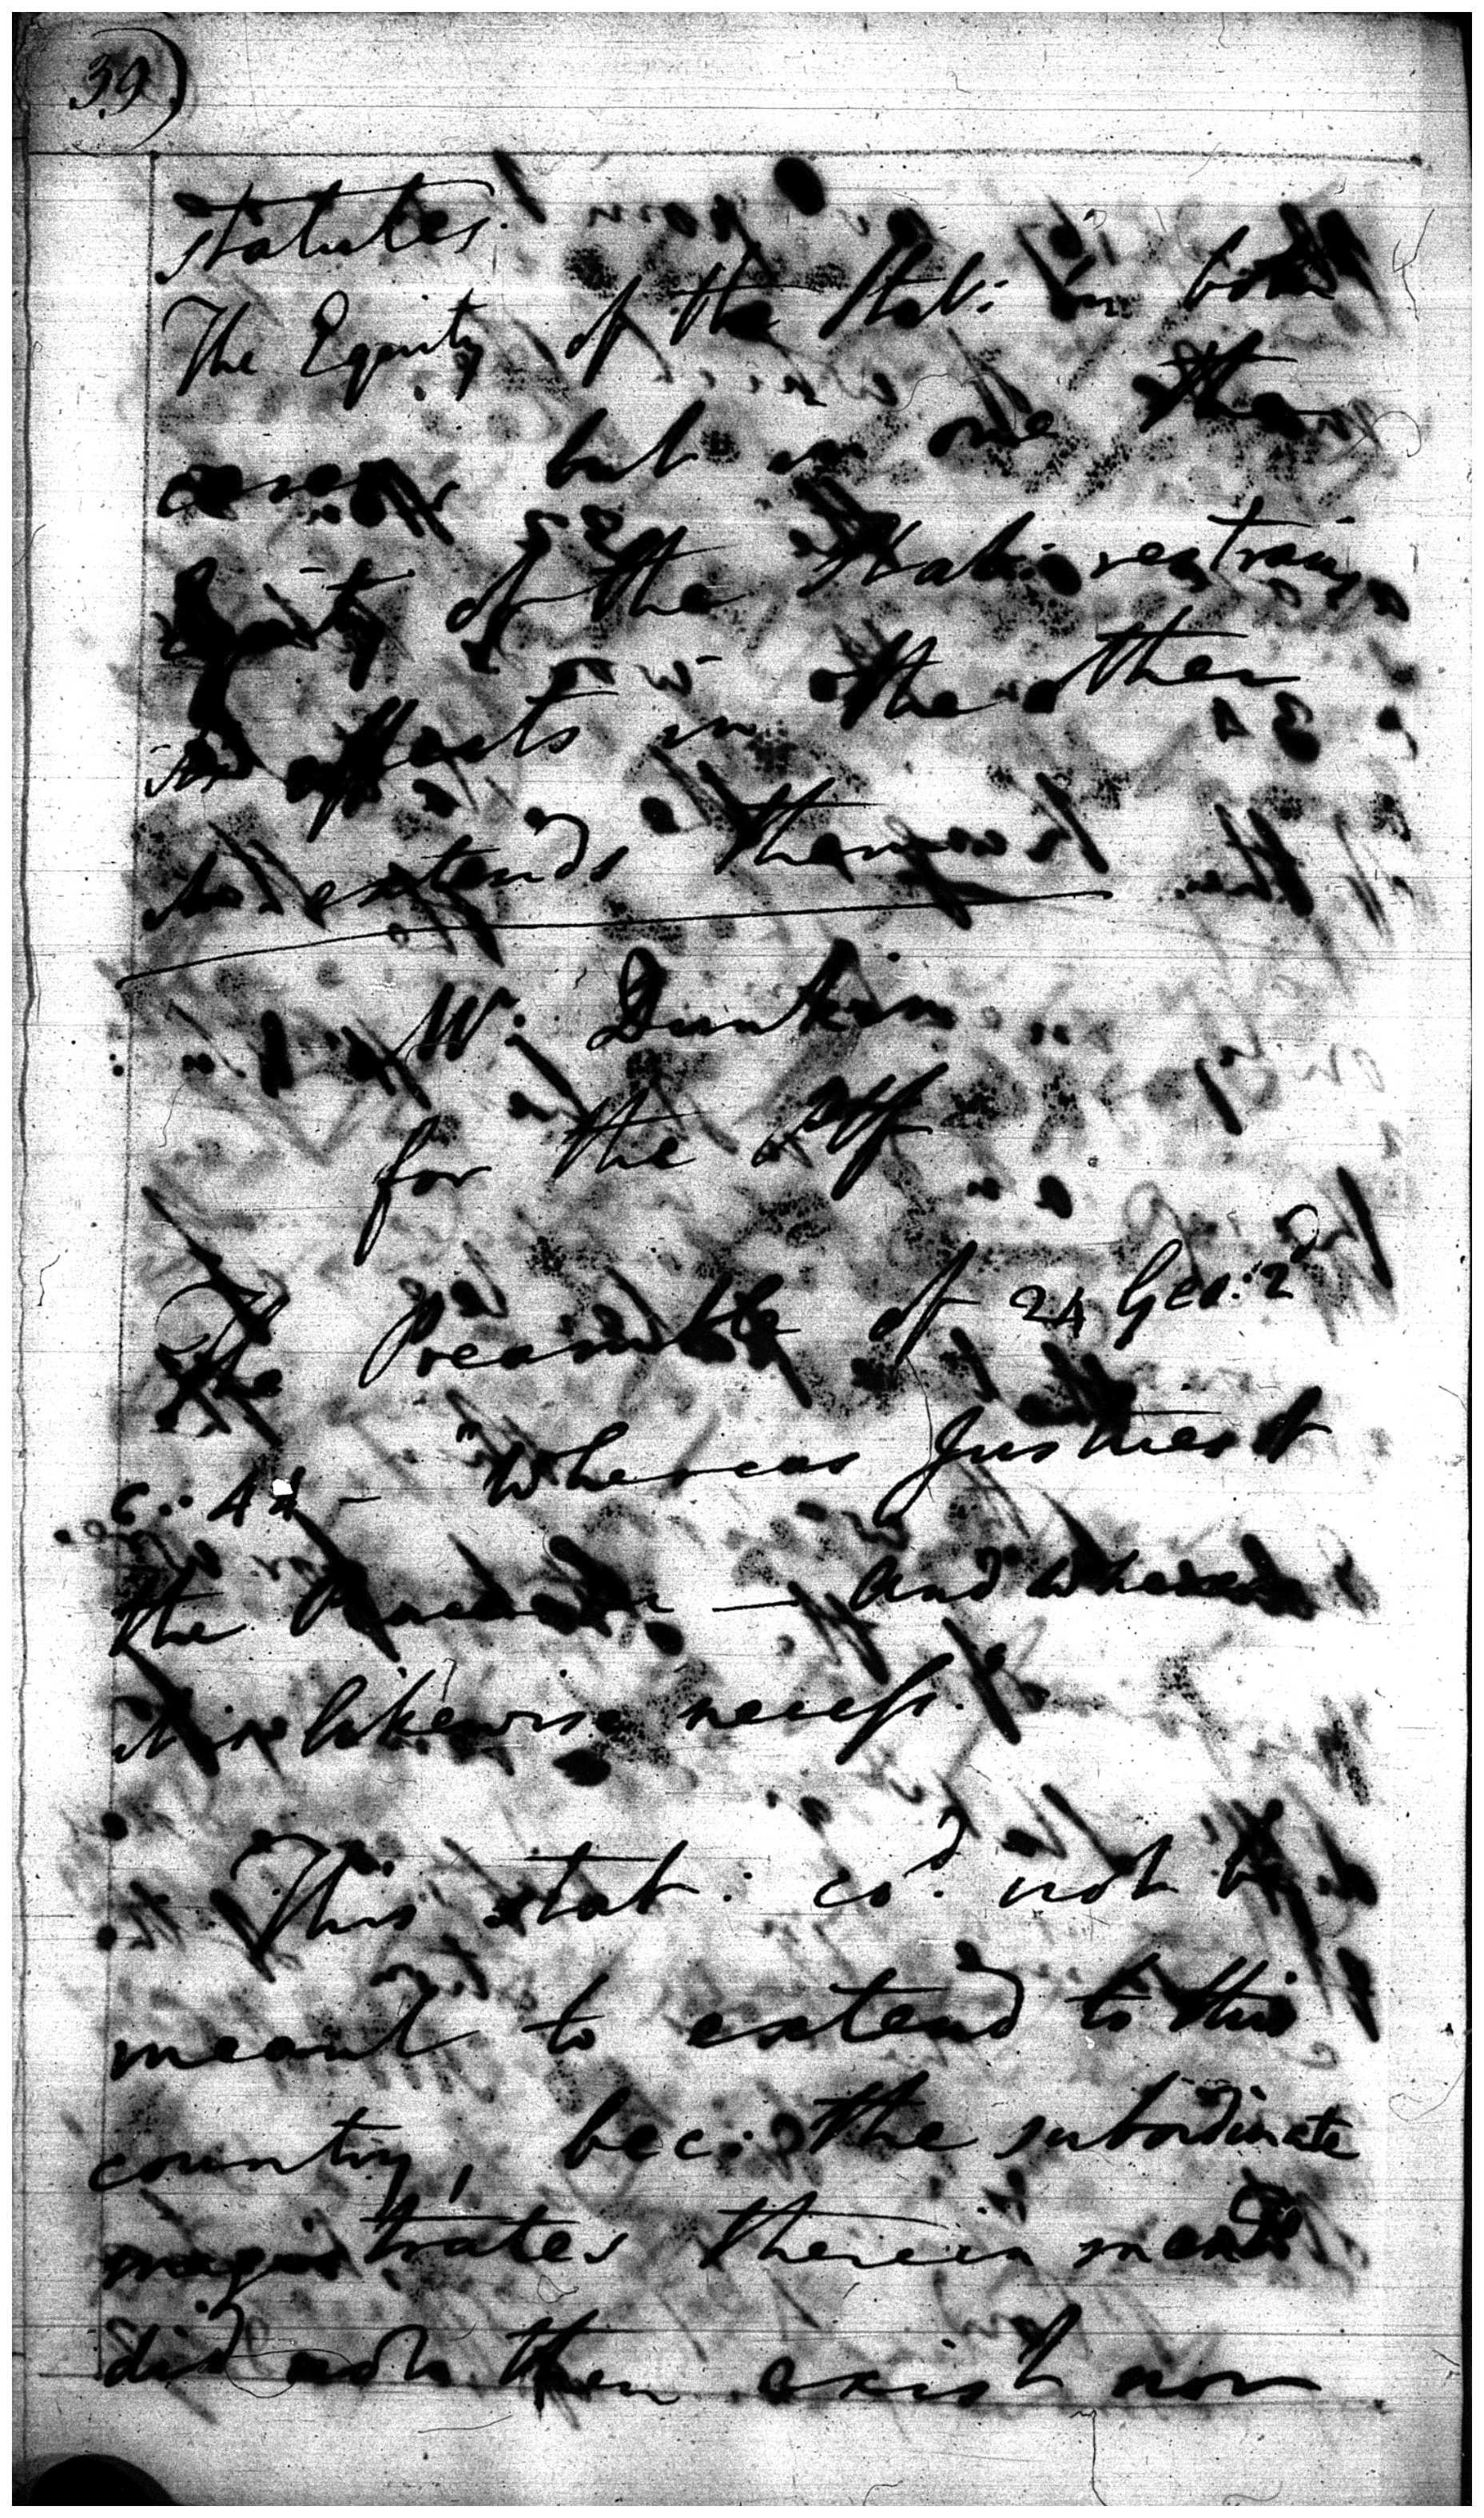 39)
statutes.
The Equity of the Stat: in both
cases, but in one the
Equity of the Stat: restrains
its effects in the other
it extends them
W: Dunkin
for the Plff
The Preamble of 24 Geo: 2d
c: 44 - "Whereas Justices of
the Peace — and whereas
it is likewise necess.
This stat: co'd not be
meant to extend to this
country, bec: the subordinate
magistrates therein ment'd
did not then exist nor